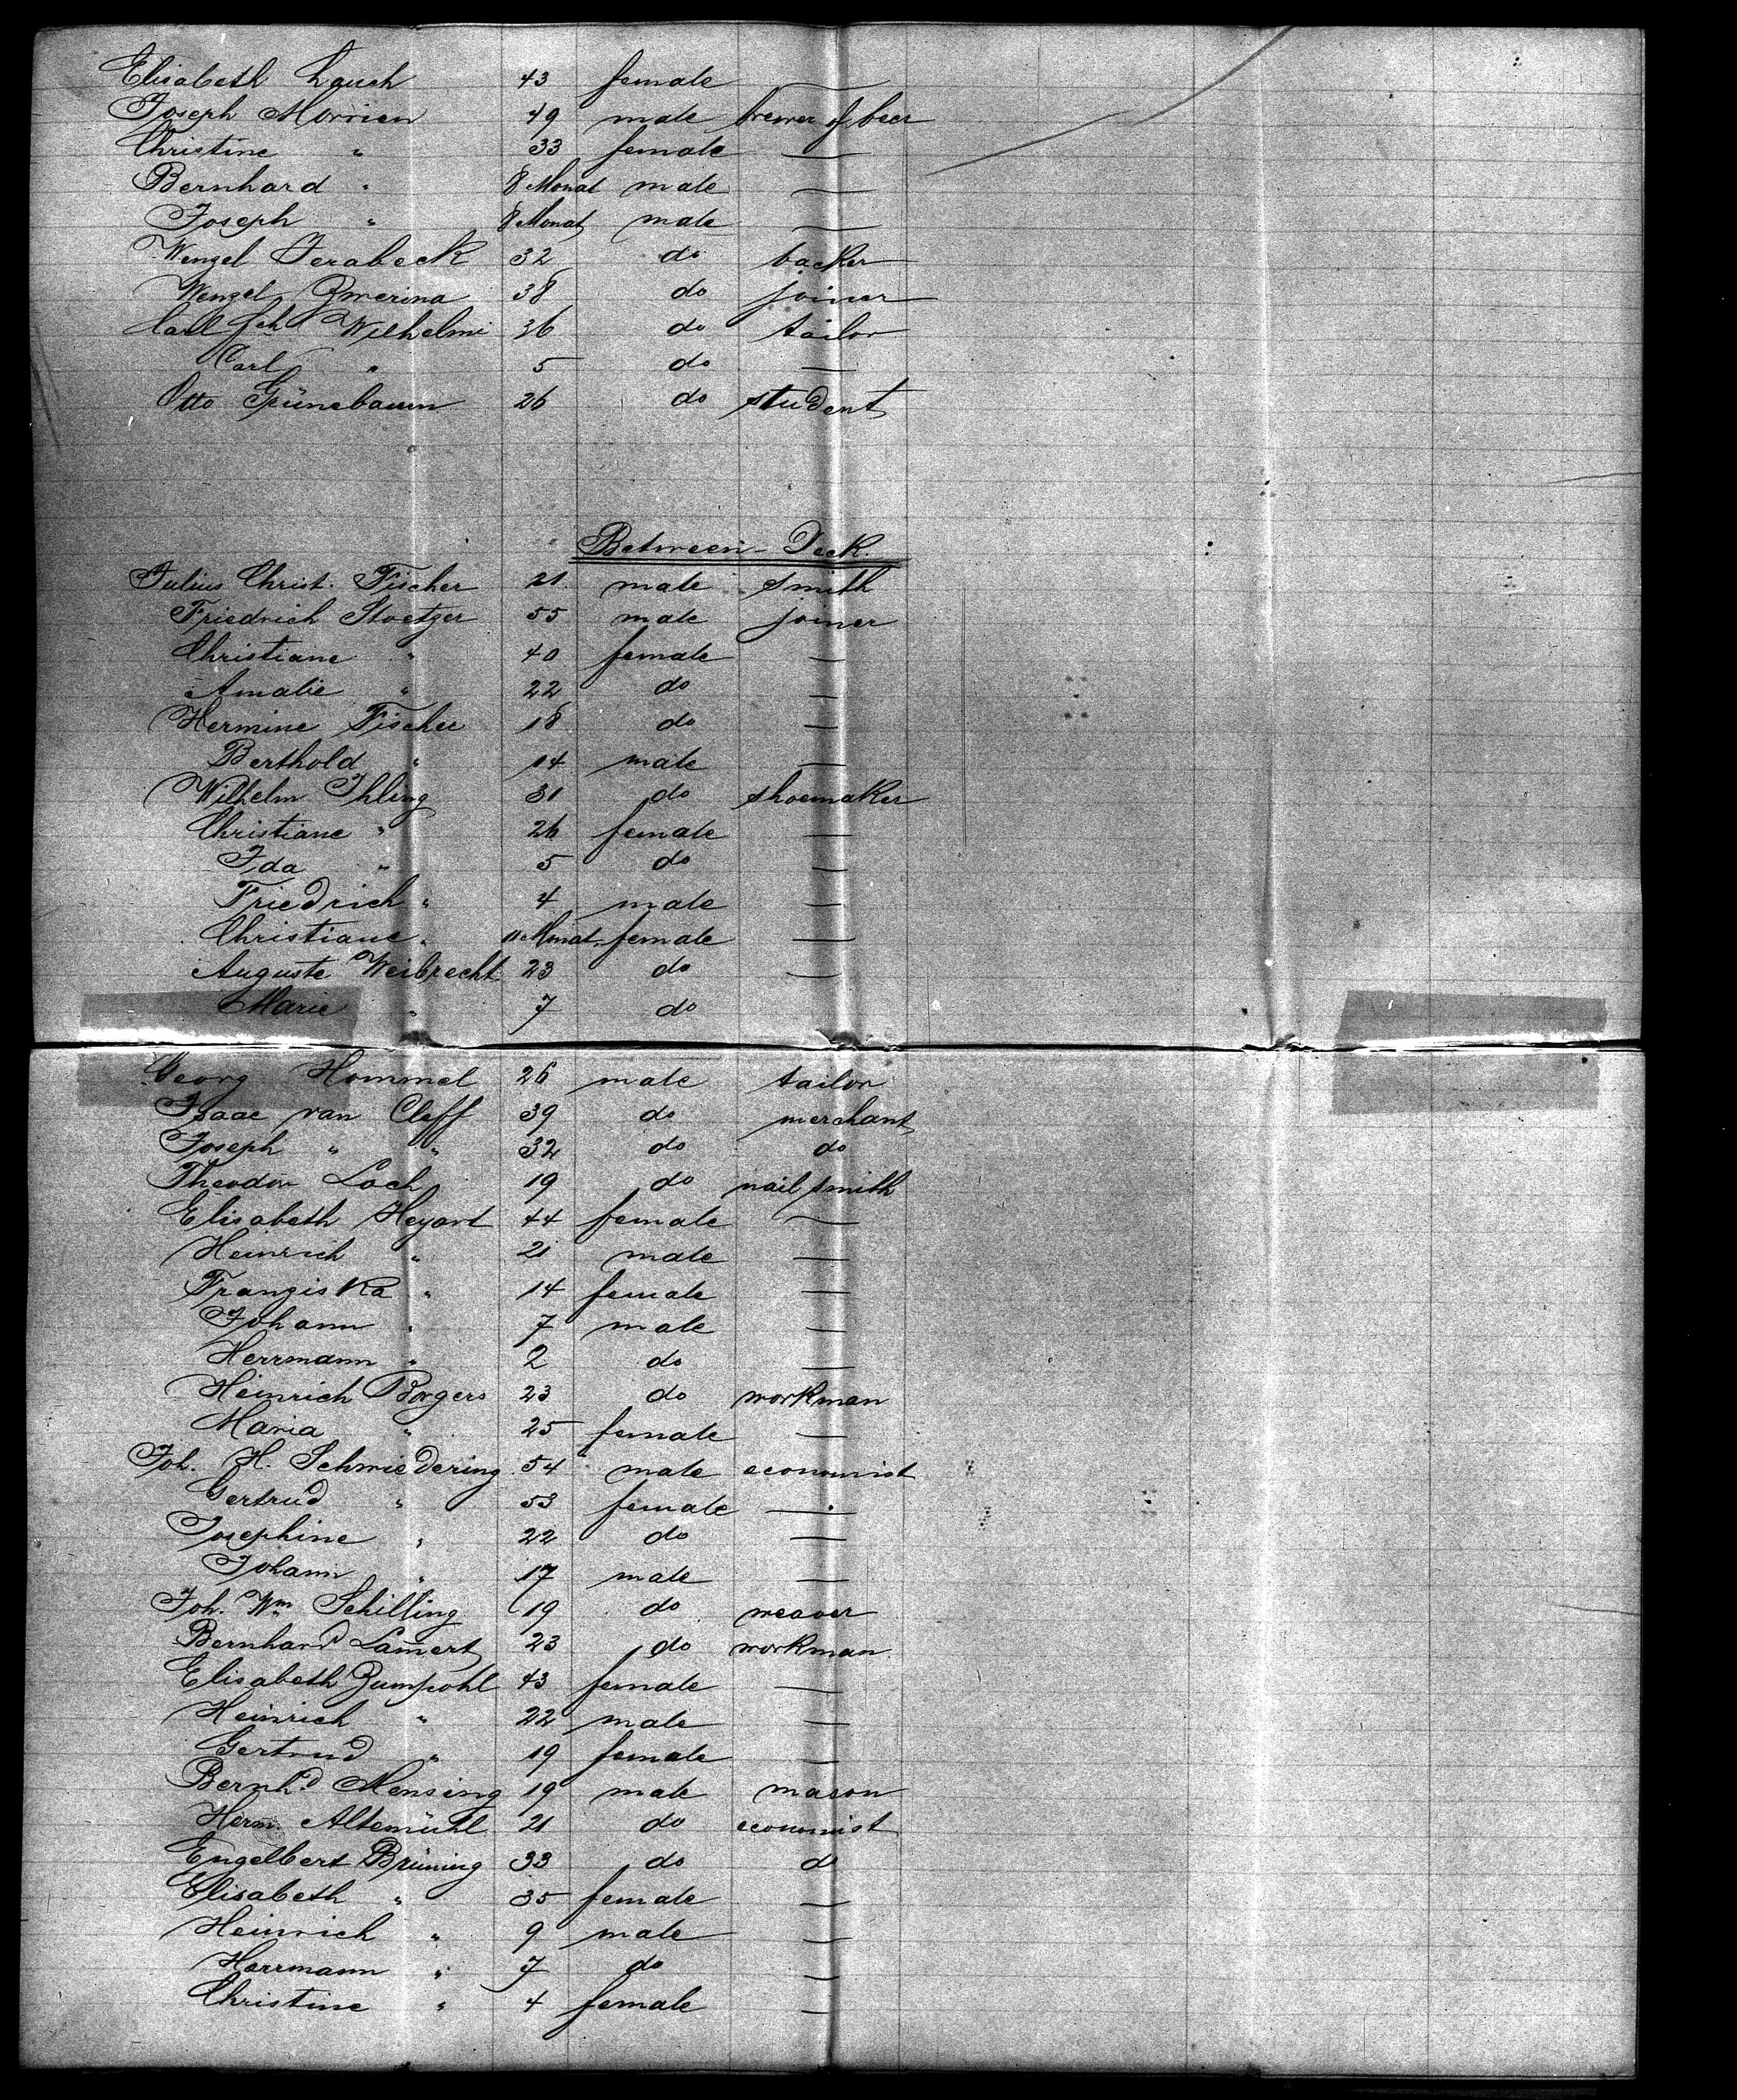 Elisabeth Lauch 43 female —
Joseph Morrien 49 male brewer of beer
Christine " 33 female —
Bernhard " 8 Monat male —
Joseph " 8 Monat male —
Wenzel Jerabeck 32 do backer
Wenzel Zmerina 38 do joiner
Carl Joh Wilhelmi 36 do tailor
Carl " 5 do —
Otto Grünebaum 26 do student
Between-Deck.
Julius Christ. Fischer 21 male smith
Friedrich Stoetzer 55 male joiner
Christiane " 40 female —
Amalie " 22 do —
Hermine Fischer 18 do —
Berthold " 14 male —
Wilhelm Ihling 31 do shoemaker
Christiane " 26 female —
Ida " 5 do —
Friedrich " 4 male —
Christiane " 11 Monat female —
Auguste Weibrecht 23 do —
Marie " 7 do
Georg Hommel 26 male tailor
Isaac van Cleff 39 do merchant
Joseph " " 32 do do
Theodor Loch 19 do nail smith
Elisabeth Heyart 44 female —
Heinrich " 21 male —
Franziska " 14 female —
Johann " 7 male —
Herrmann " 2 do —
Heinrich Borgers 23 do workman
Maria " 25 female —
Joh. H. Schmiedering 54 male economist
Gertrud " 53 female —
Josephine " 22 do —
Johann " 17 male —
Joh. Wm Schilling 19 do weaver
Bernhard Lam̄ert 23 do workman
Elisabeth Zumpohl 43 female —
Heinrich " 22 male —
Gertrud " 19 female —
Bernhd Mensing 19 male mason
Herm. Altemühl 21 do economist
Engelbert Brüning 33 do do
Elisabeth " 35 female —
Heinrich " 9 male —
Herrmann " 7 do —
Christine " 4 female —